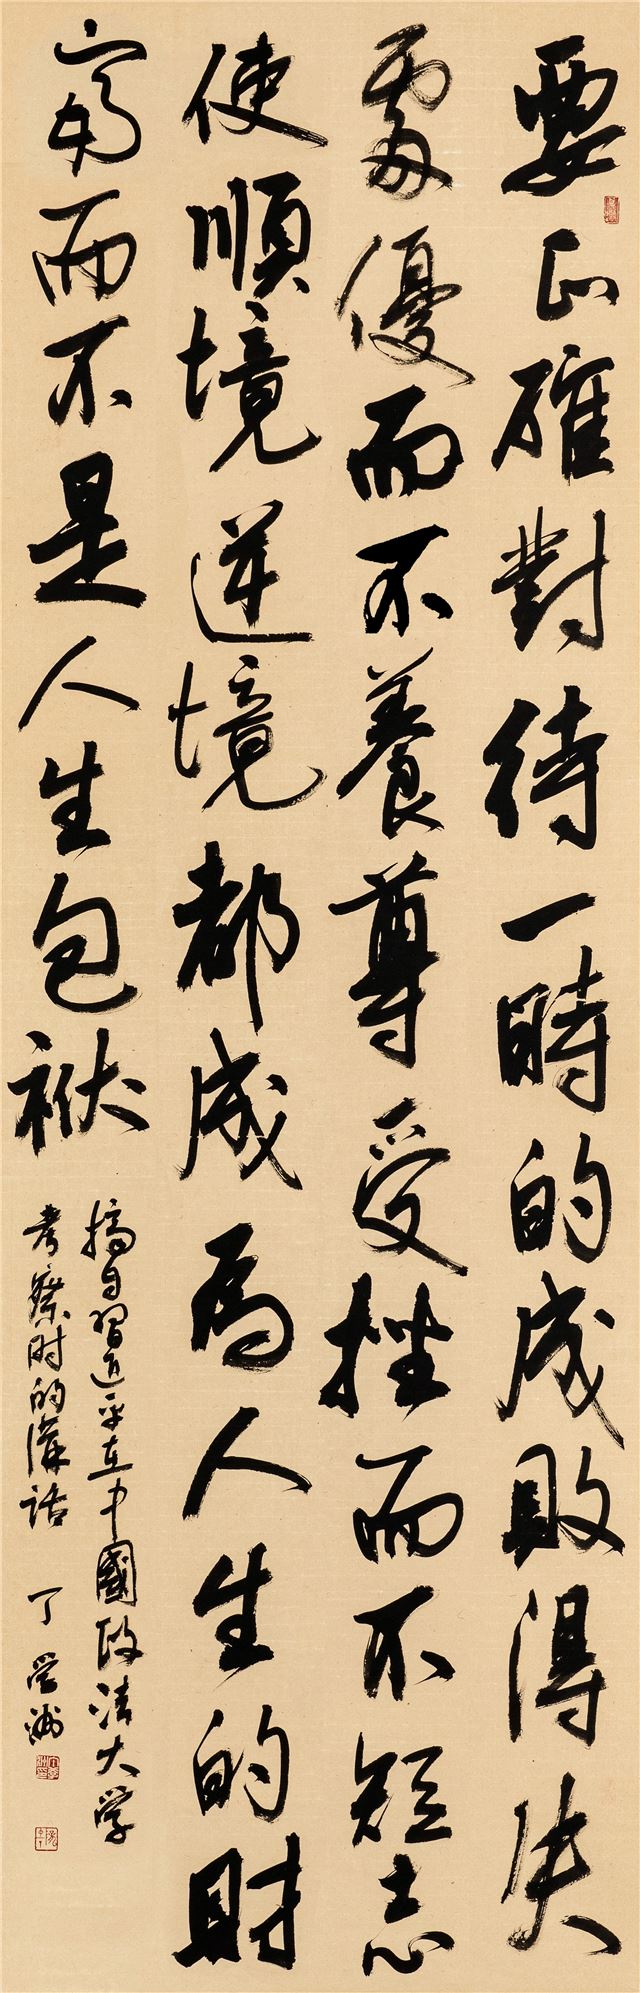 要正確對待一時的成敗得失
處優而不養尊受挫而不短志
使順境逆境都成為人生的財
富而不是人生包袱
摘自習近平在中國政法大学
考察时的講话 丁